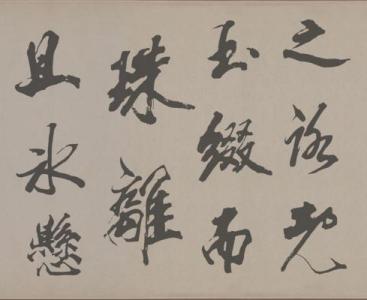 之
玉綴而
珠離
且氷懸